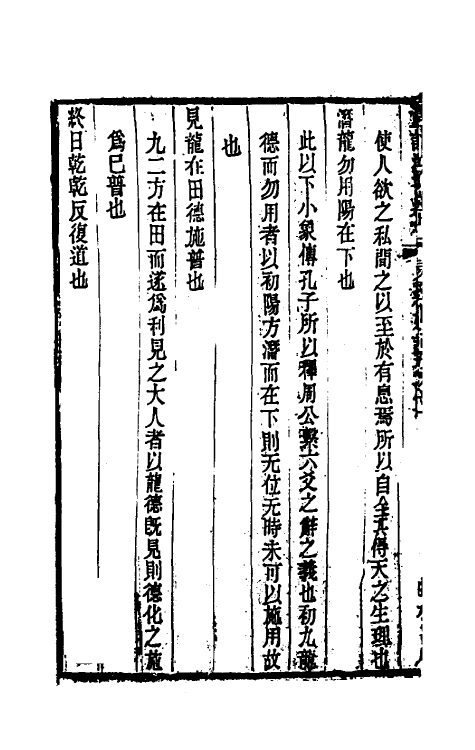 使人欲之私間之以至於有息焉所以自全其得天之生理也
潛龍勿用陽在下也
此以下小象傳孔子所以釋周公繫六爻之辭之義也初九龍
德而勿用者以初陽方潛而在下則无位无時未可以施用故
也
見龍在田德施普也
九二方在田而遂爲利見之大人者以龍德旣見則德化之施
爲已普也
終日乾乾反復道也